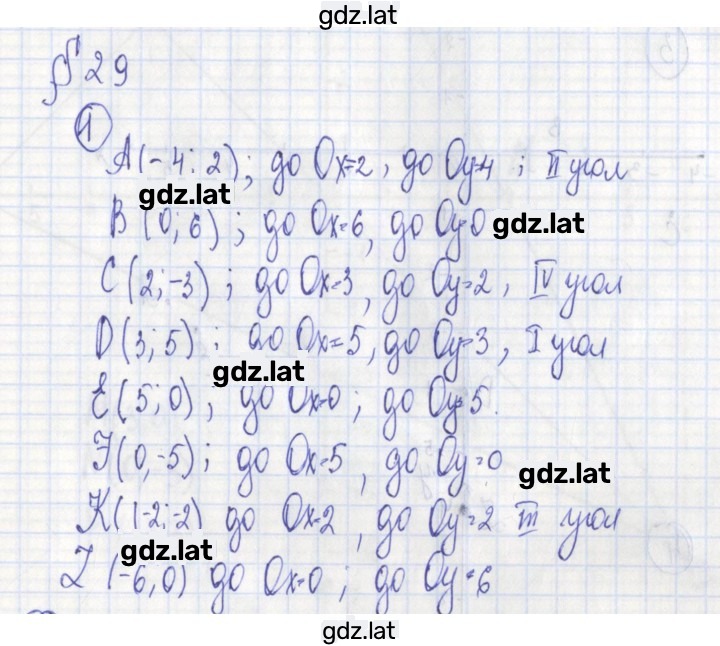 gdz.lat
§29
1
A(-4; 2); до Ox=2, до Oy=4; II угол
gdz.lat
B(0; 6); до Ox=6, до Oy=0 gdz.lat
C(2; -3); до Ox=3, до Oy=2, IV угол
D(3; 5); до Ox=5, до Oy=3, I угол
gdz.lat
E(5; 0); до Ox=0; до Oy=5.
F(0, -5); до Ox=5, до Oy=0
gdz.lat
K(-2; -2) до Ox=2, до Oy=2 III угол
gdz.lat
L(-6, 0) до Ox=0; до Oy=6
gdz.lat